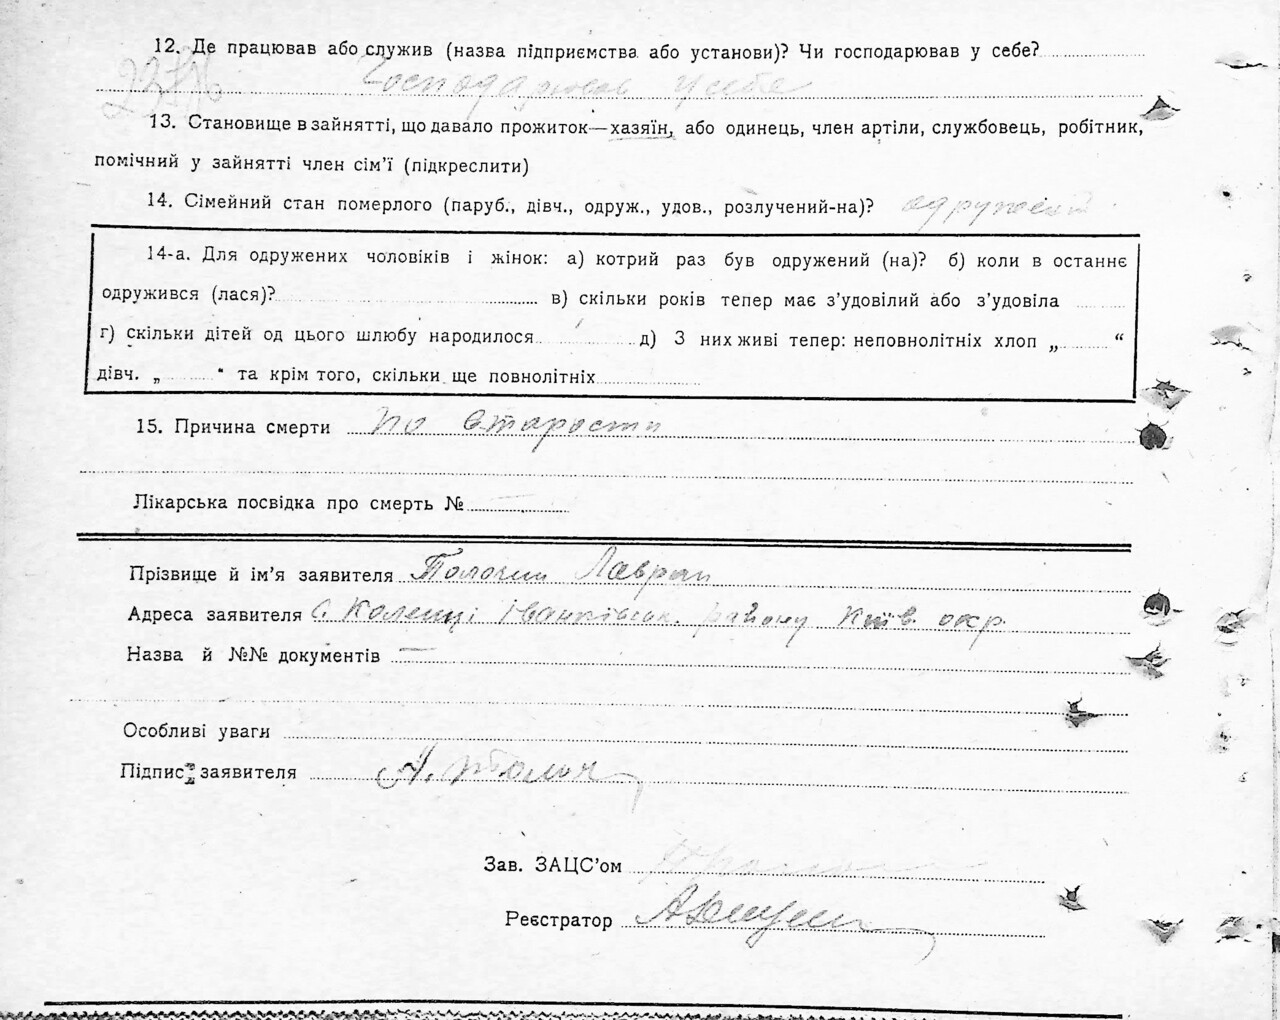 12. Де працював або служив (назва підприємства або установи)? Чи господарював у себе?
Господарював у себе
13. Становище в зайнятті, що давало прожиток—хазяїн, або одинець, член артіли, службовець, робітник,
помічний у зайнятті член сім’ї (підкреслити)
14. Сімейний стан померлого (паруб., дівч., одруж., удов., розлучений-на)? одружений
14-а. Для одружених чоловіків і жінок: а) котрий раз був одружений (на)? б) коли в останнє
одружився (лася)? в) скільки років тепер має з’удовілий або з’удовіла
г) скільки дітей од цього шлюбу народилося д) З них живі тепер: неповнолітніх хлоп „ “
дівч. „ “ та крім того, скільки ще повнолітніх
15. Причина смерти по старости
Лікарська посвідка про смерть №
Прізвище й ім’я заявителя Лаврен
Адреса заявителя с. Коленці Іванківськ. району Київ. окр.
Назва й №№ документів —
Особливі уваги
Підпис заявителя
Зав. ЗАЦС’ом
Реєстратор